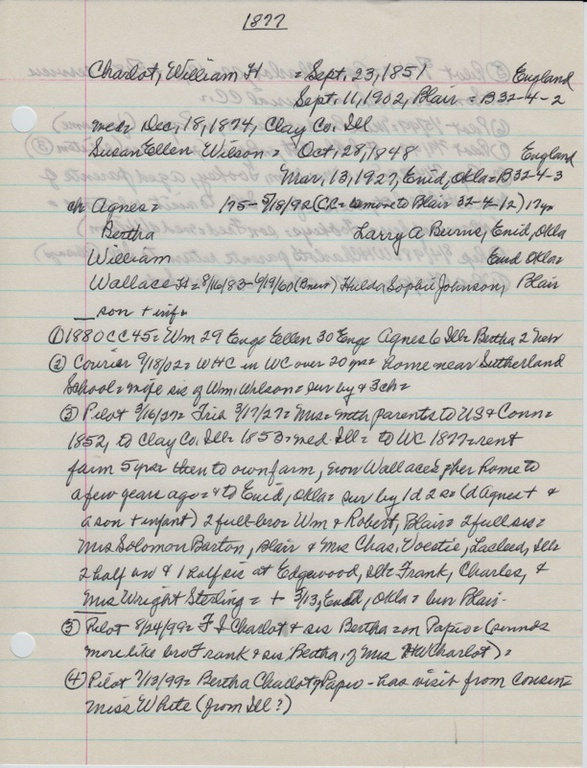 1877
Charlot, William H = Sept. 23, 1851 England
Sept. 11, 1902, Blair = B32-4-2
med= Dec, 18, 1874, Clay Co. Ill
Susan Ellen Wilson = Oct, 28, 1848 England
Mar, 13, 1927, Enid, Okla= B32-4-3
ch Agnes= 175- 5/18/92 (CC= to Blair 32-4-12) 17yr
Bertha Larry A Burns, Enid, Okla
William Enid Okla=
Wallace H = 8/16/83- 6/9/60 Hulda Sophie Johnson, Blair
son + inf
① 1880 CC45= Wm 29 Eng= Ellen 30 Eng= Agnes 6 Ill= Bertha 2 Neb
② Courier 9/18/02= WHC in WC over 20 yrs= home near Sutherland
School= wife sis of Wm. Wilson= sur by + 3ch=
③ Pilot 3/16/27= Frid 3/17/27= Mrs= with parents to US & Conn=
1852, to Clay Co. Ill= 1853= med Ill= to WC 1877= rent
farm 5 yrs= then to own farm, son Wallace's = her home to
a few years ago = & to Enid, Okla= sur by 1 d 2 s= (d Agnes + &
a son + infant) 2 full bro= Wm & Robert, Blair= 2 full sis=
Mrs Solomon Barton, Blair & Mrs Chas, Voestie, Laclead, Ill=
2 half & 1 half sis at Edgewood, Ill= Frank, Charles, &
Mrs Wright Sterling = + 3/13, Enid, Okla= bur Blair-
③ Pilot 8/24/99= F I Charlot & sis Bertha= on Papio= (sounds
more like bro Frank & sis Bertha, of Mrs HW Charlot)=
④ Pilot 7/13/99= Bertha Charlot of Papio - has visit from cousin=
Miss White (from Ill?)